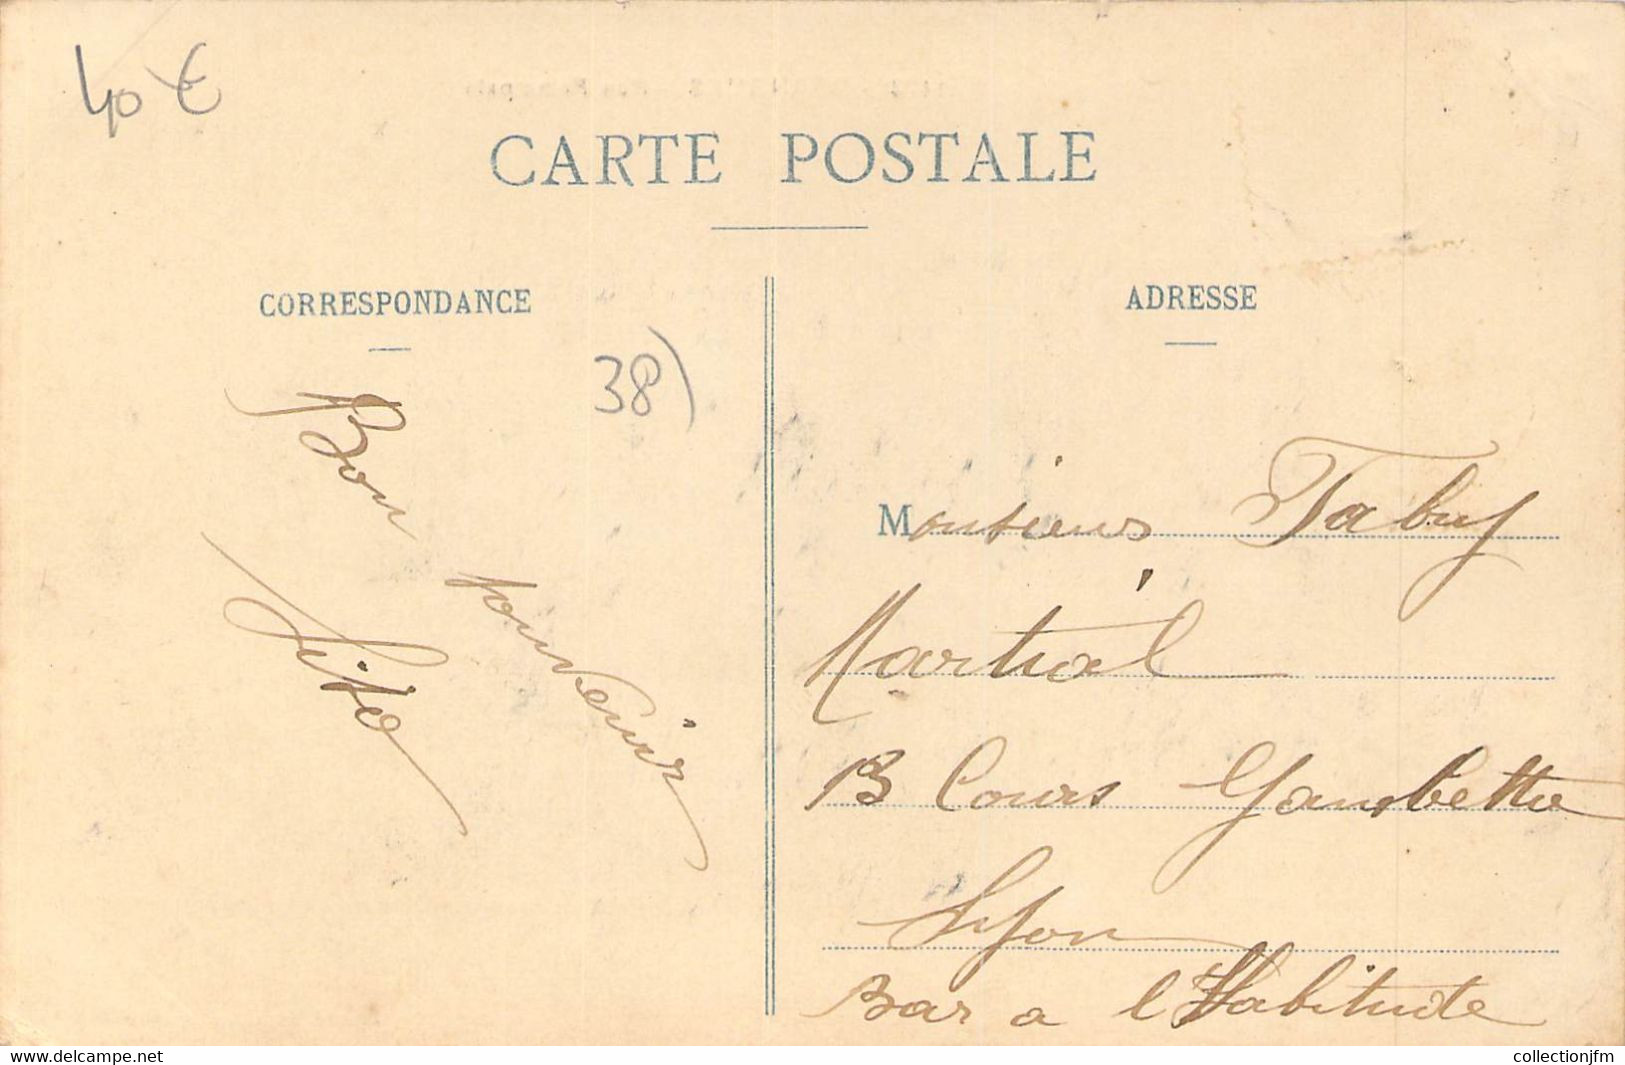 40 €
CARTE POSTALE
CORRESPONDANCE
ADRESSE
38)
Bon
souvenir
Monsieur Tabuy
Martial
13 Cours Gambetta
Lyon
Bar a l'Habitude
www.delcampe.net
collectionjfm